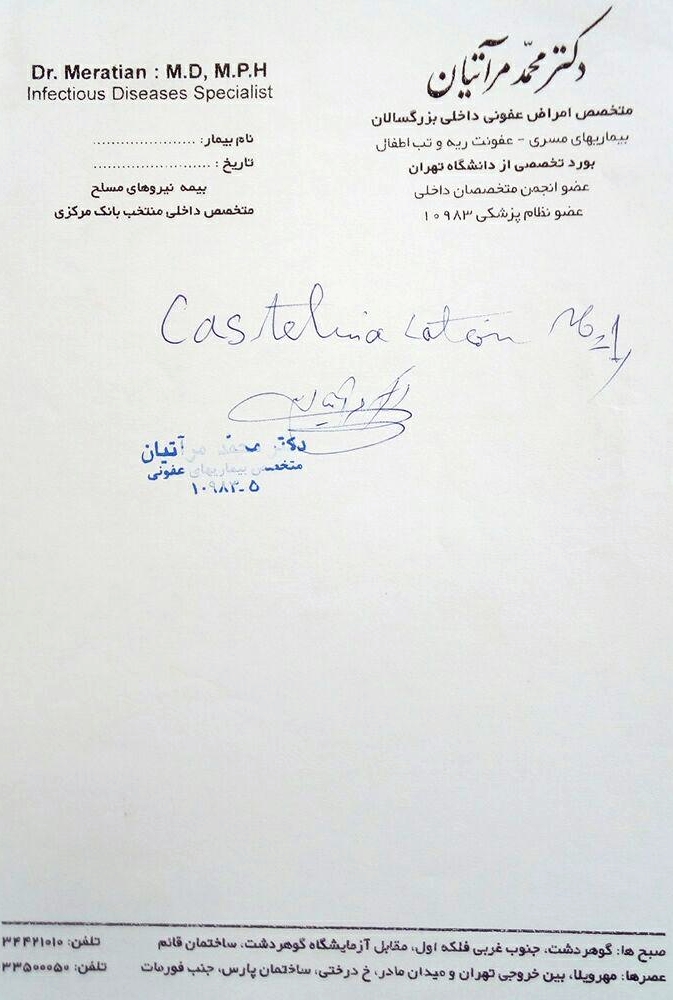 دکتر محمّد مرآتیان
متخصص امراض عفونی داخلی بزرگسالان
بیماریهای مسری - عفونت ریه و تب اطفال
بورد تخصصی از دانشگاه تهران
عضو انجمن متخصصان داخلی
عضو نظام پزشکی ۱۰۹۸۳
Dr. Meratian : M.D, M.P.H
Infectious Diseases Specialist
نام بیمار: ......................
تاریخ : ..........................
بیمه نیروهای مسلح
متخصص داخلی منتخب بانک مرکزی
Castelina Lotion N=1
دکتر محمد مرآتیان
متخصص بیماریهای عفونی
۱۰۹۸۳-۵
صبح ها: گوهردشت، جنوب غربی فلکه اول، مقابل آزمایشگاه گوهردشت، ساختمان قائم تلفن: ۳۴۴۲۱۰۱۰
عصرها: مهرویلا، بین خروجی تهران و میدان مادر، خ درختی، ساختمان پارس، جنب فورجات تلفن: ۳۳۵۰۰۰۵۰